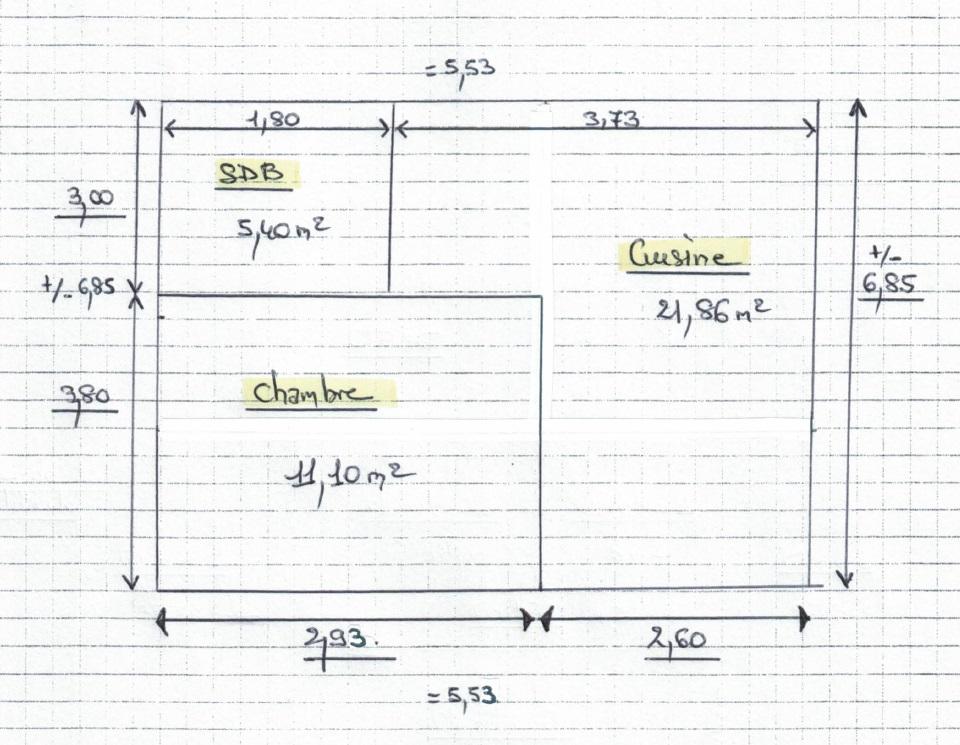 = 5,53
1,80
3,73
SDB
3,00
5,40 m²
Cuisine
+/-
+/- 6,85
6,85
21,86 m²
Chambre
3,80
11,10 m²
2,93.
2,60
= 5,53